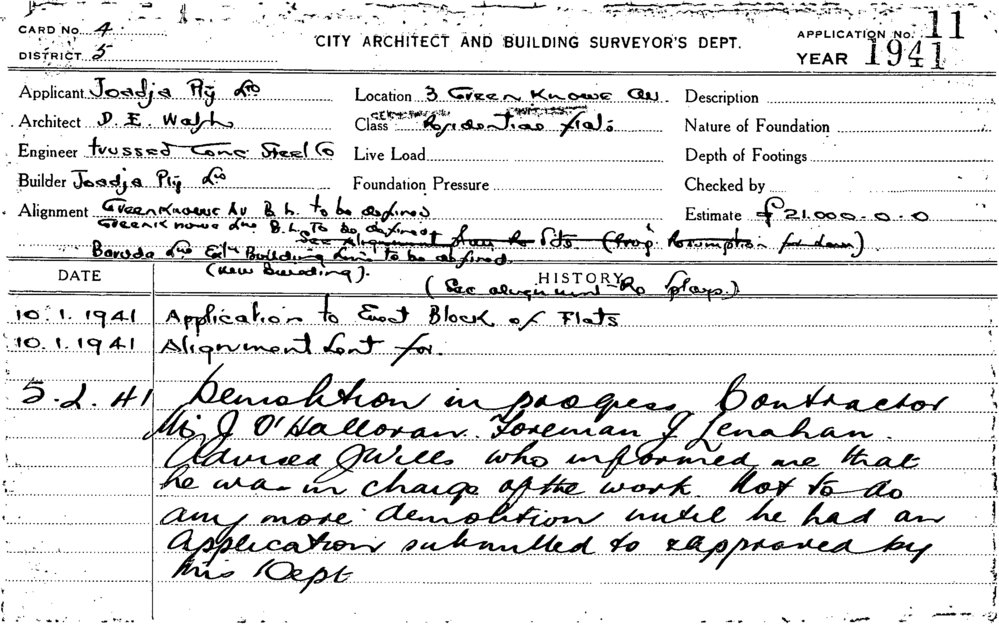 CARD No. 4
DISTRICT 5
CITY ARCHITECT AND BUILDING SURVEYOR'S DEPT.
APPLICATION No. 11
YEAR 1941
Applicant Joadja Pty Ltd
Location 3 Green Knowe Av.
Description
Architect D. E. Walsh
Class Residential flats
Nature of Foundation
Engineer trussed Conc Steel Co
Live Load
Depth of Footings
Builder Joadja Pty Ltd
Foundation Pressure
Checked by
Alignment Greenknowe Av B. L. to be defined
Estimate £21.000.0.0
Greenknowe Lne B. L. To be defined
See alignment plan Re Pts (Prop. Resumption for Lane)
Baroda Lne Building Line to be defined.
(New Building).
DATE
HISTORY
(See alignment Re plans.)
10.1.1941 Application to Erect Block of Flats
10.1.1941 Alignment Sent for.
5.2.41 Demolition in progress Contractor
Mr J O'Halloran. Foreman J Lenahan.
Advised J Wells who informed me that
he was in charge of the work. Not to do
any more demolition until he had an
application submitted to & approved by
this Dept